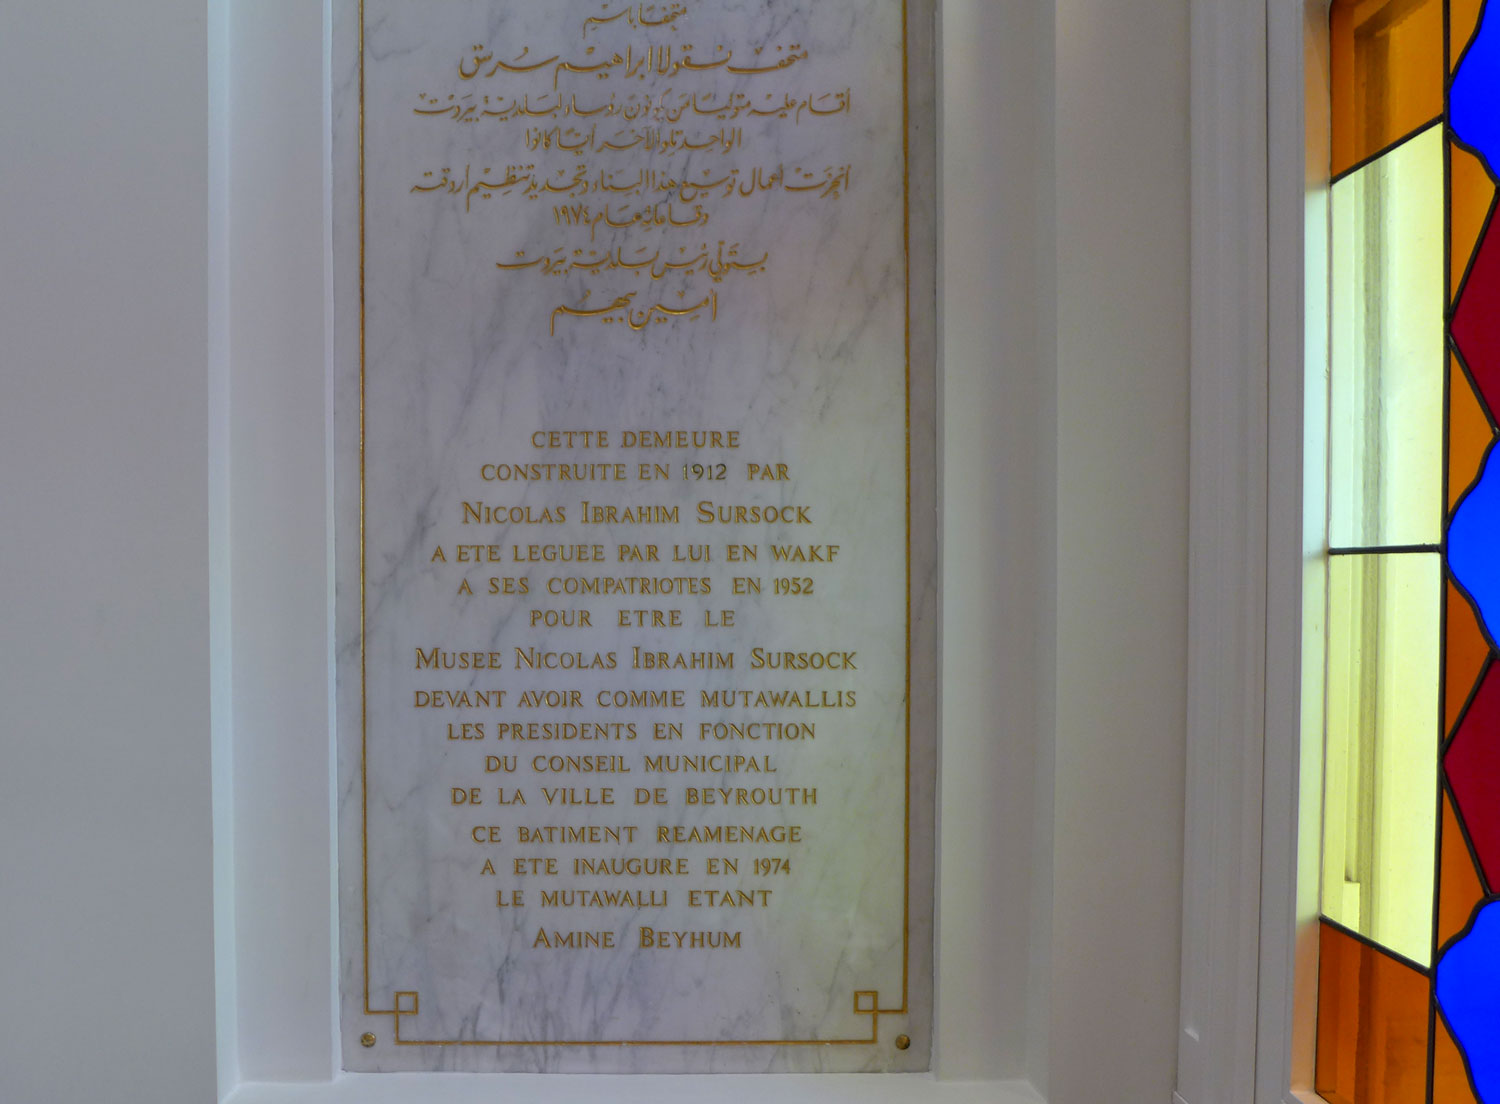 متحفًا باسم
متحف نقولا ابراهيم سرسق
أقام عليه متوليًا من يكونون رؤساء لبلدية بيروت
الواحد تلو الآخر أيًا كانوا
أنجزت أعمال توسيع هذا البناء وتجديد تنظيم أروقته
وقاعاته عام ١٩٧٤
بتولي رئيس بلدية بيروت
أمين بيهم
CETTE DEMEURE
CONSTRUITE EN 1912 PAR
NICOLAS IBRAHIM SURSOCK
A ETE LEGUEE PAR LUI EN WAKF
A SES COMPATRIOTES EN 1952
POUR ETRE LE
MUSEE NICOLAS IBRAHIM SURSOCK
DEVANT AVOIR COMME MUTAWALLIS
LES PRESIDENTS EN FONCTION
DU CONSEIL MUNICIPAL
DE LA VILLE DE BEYROUTH
CE BATIMENT REAMENAGE
A ETE INAUGURE EN 1974
LE MUTAWALLI ETANT
AMINE BEYHUM